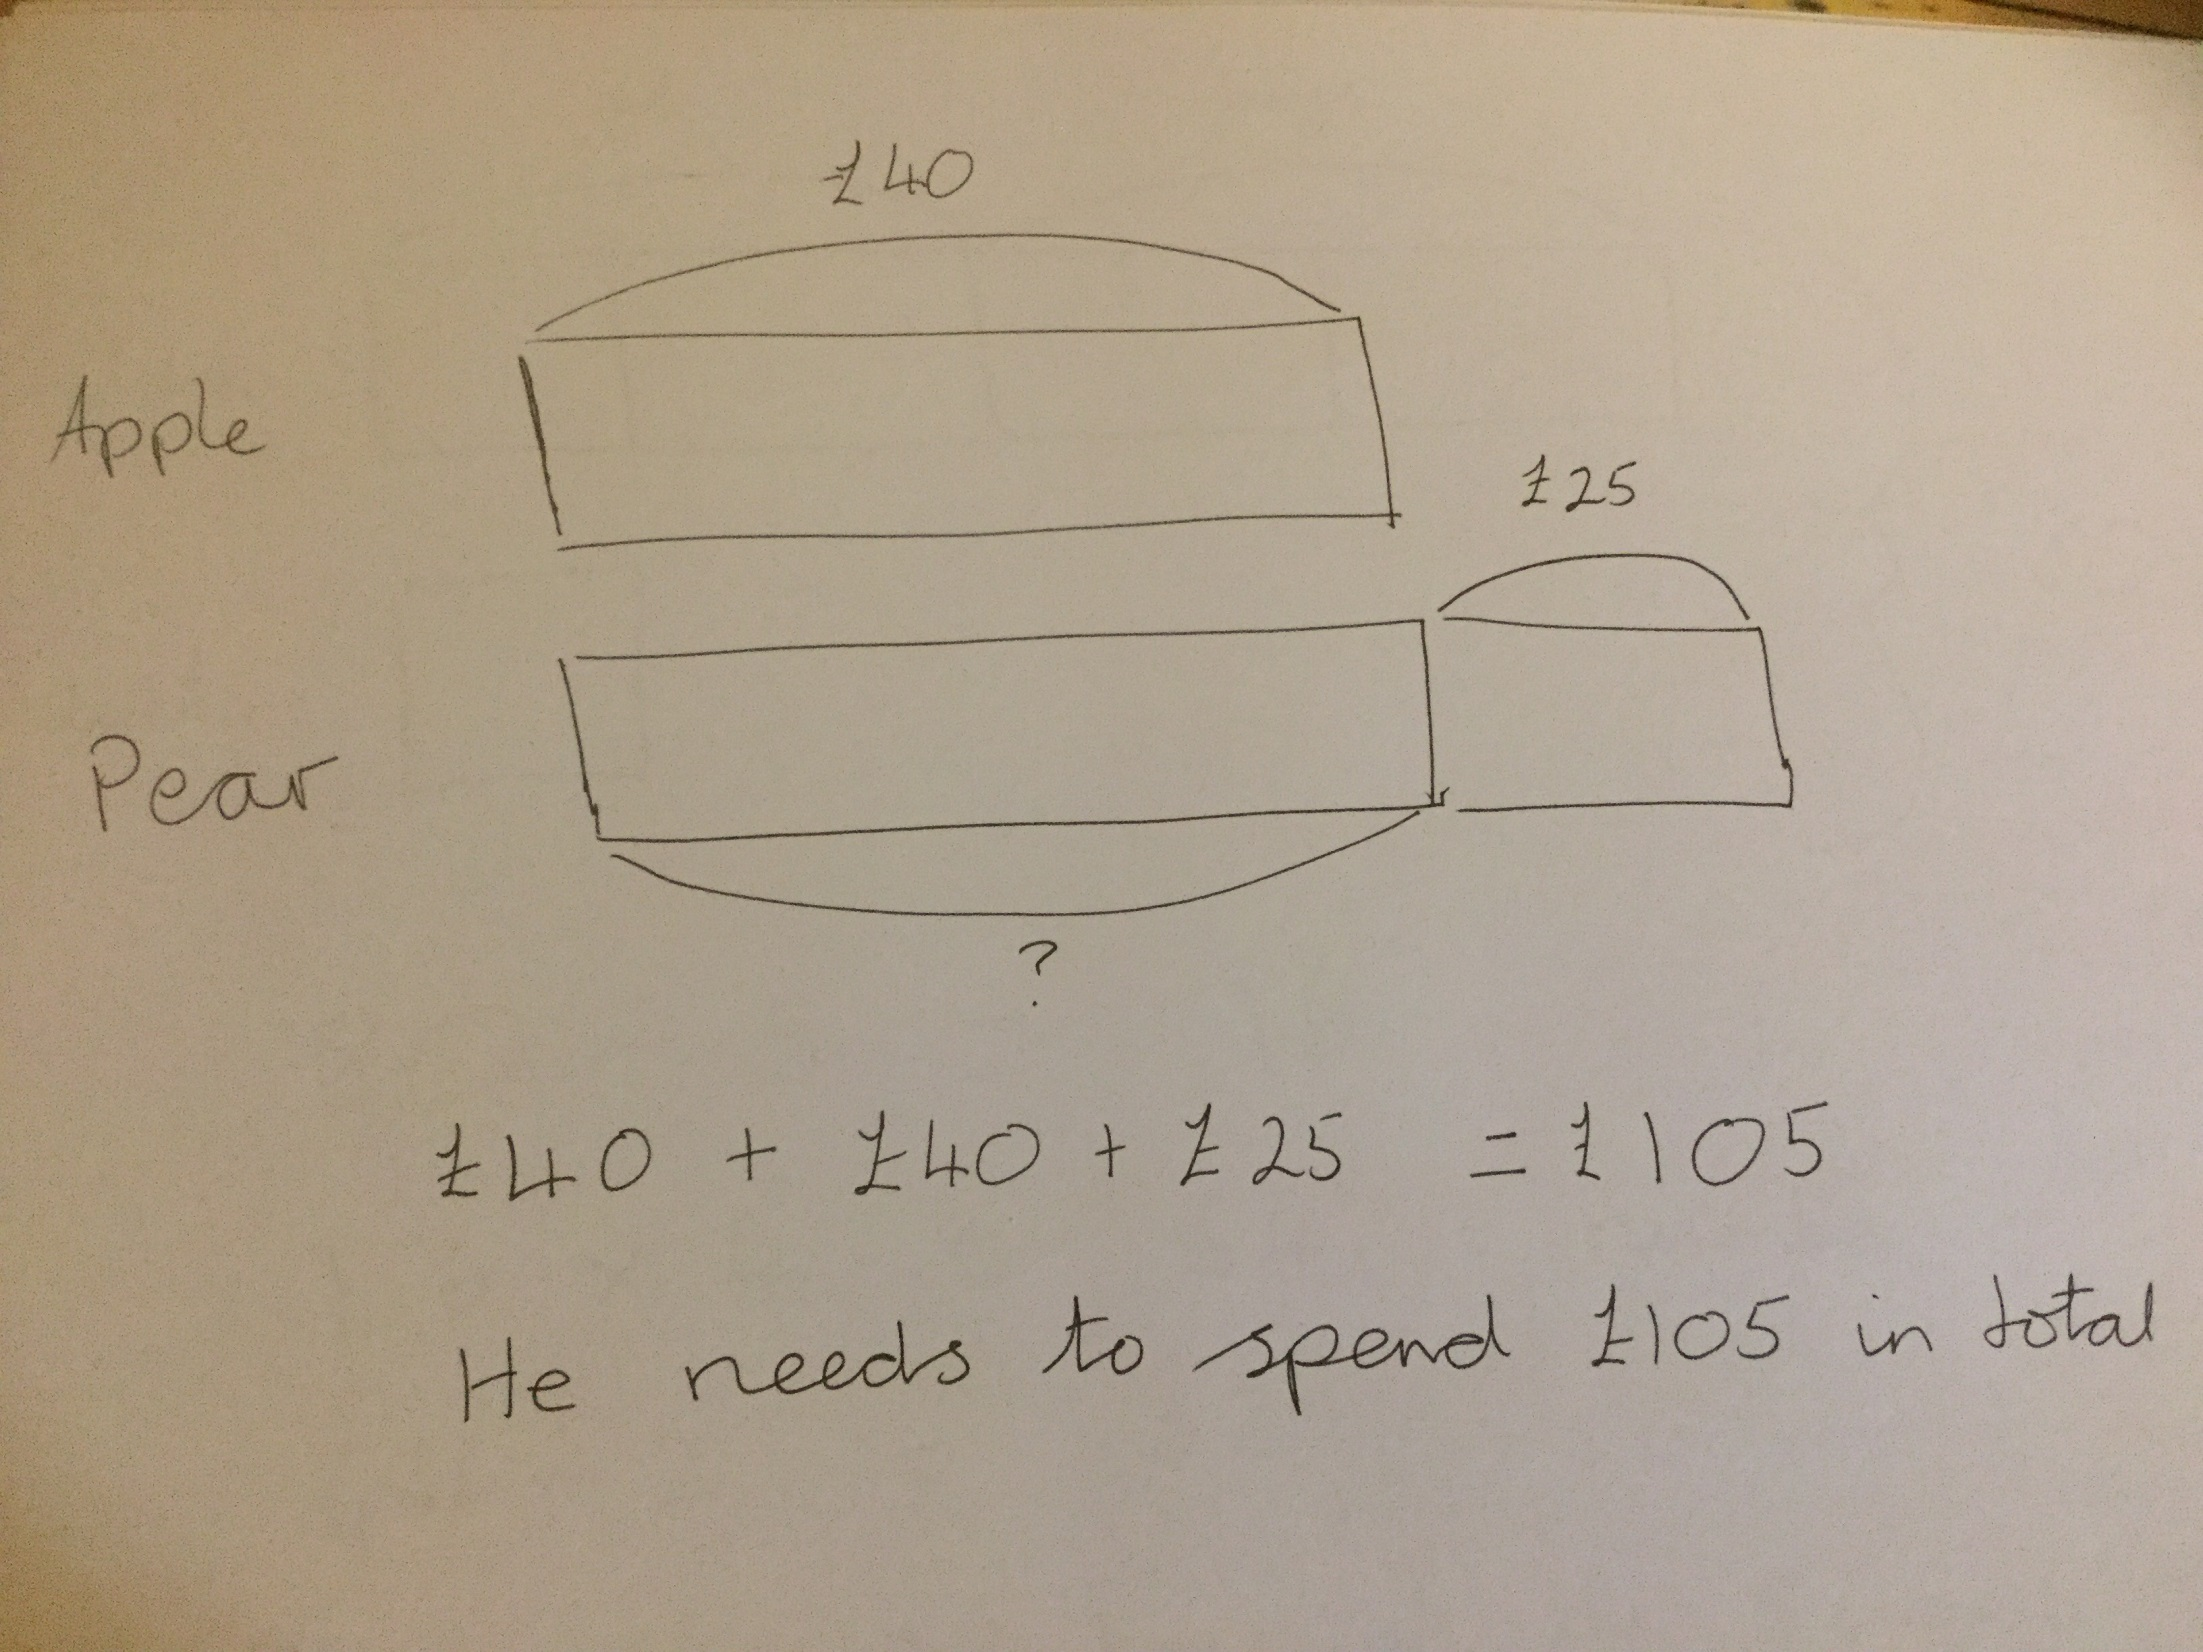 £40
Apple
£25
Pear
?
£40 + £40 + £25 = £105
He needs to spend £105 in total